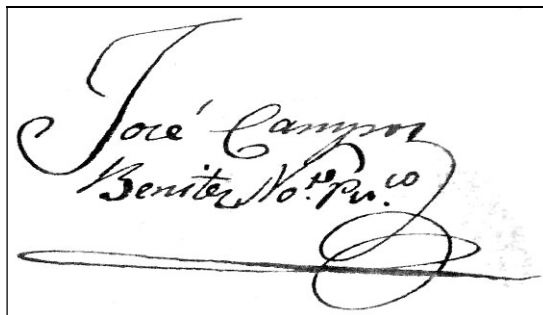 José Campos
Benitez No.ʳⁱᵒ Pu.ᶜᵒ